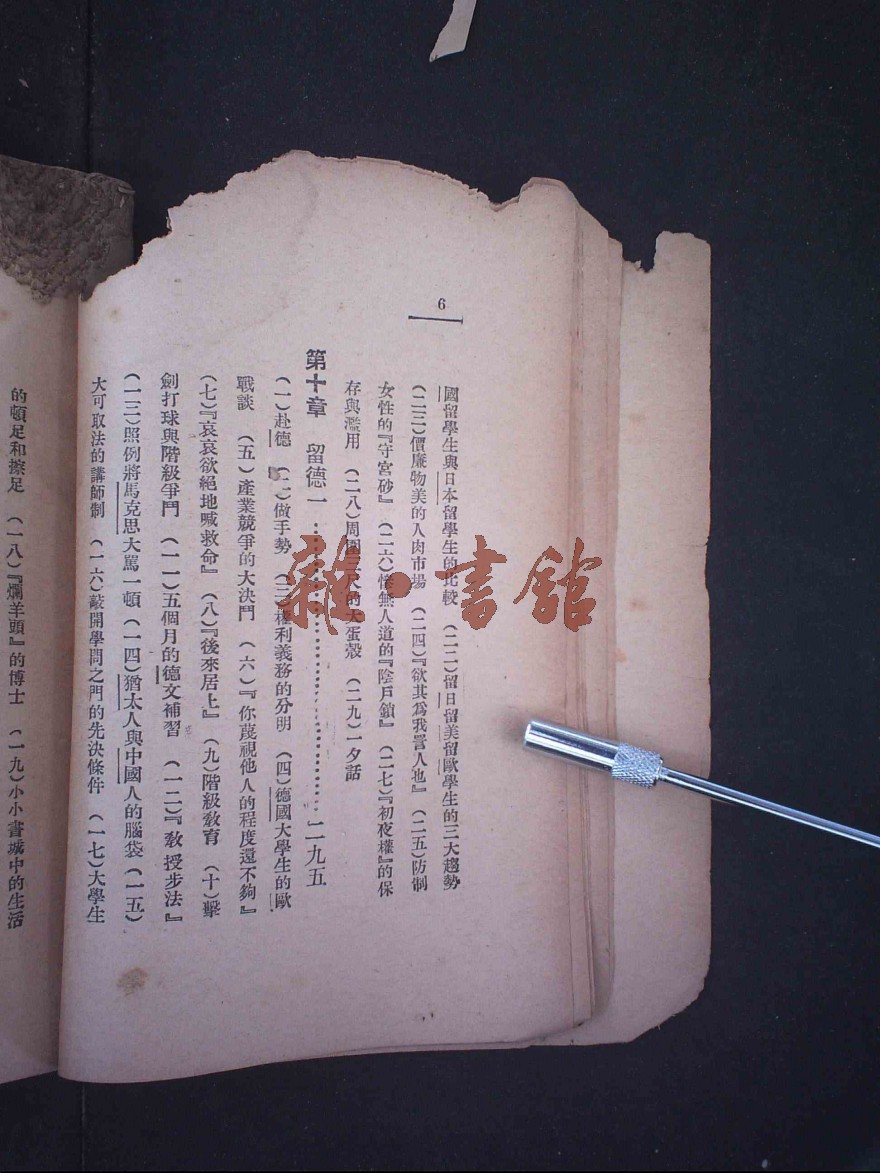 6
國留學生與日本留學生的比較 (二二)留日留美留歐學生的三大趨勢
(二三)價廉物美的人肉市場 (二四)『欲其爲我詈人也』 (二五)防制
女性的『守宮砂』 (二六)慘無人道的『陰戶鎖』 (二七)『初夜權』的保
存與濫用 (二八)周圍三尺的大蛋殼 (二九)一夕話
第十章 留德一 …………………… 二九五
(一)赴德 (二)做手勢 (三)權利義務的分明 (四)德國大學生的歐
戰談 (五)產業競爭的大決鬥 (六)『你蔑視他人的程度還不夠』
(七)『哀哀欲絕地喊救命』 (八)『後來居上』 (九)階級敎育 (十)擊
劍打球與階級爭鬥 (一一)五個月的德文補習 (一二)『敎授步法』
(一三)照例將馬克思大罵一頓 (一四)猶太人與中國人的腦袋 (一五)
大可取法的講師制 (一六)敲開學問之門的先決條件 (一七)大學生
的頓足和擦足 (一八)『爛羊頭』的博士 (一九)小小書城中的生活
雜·書館